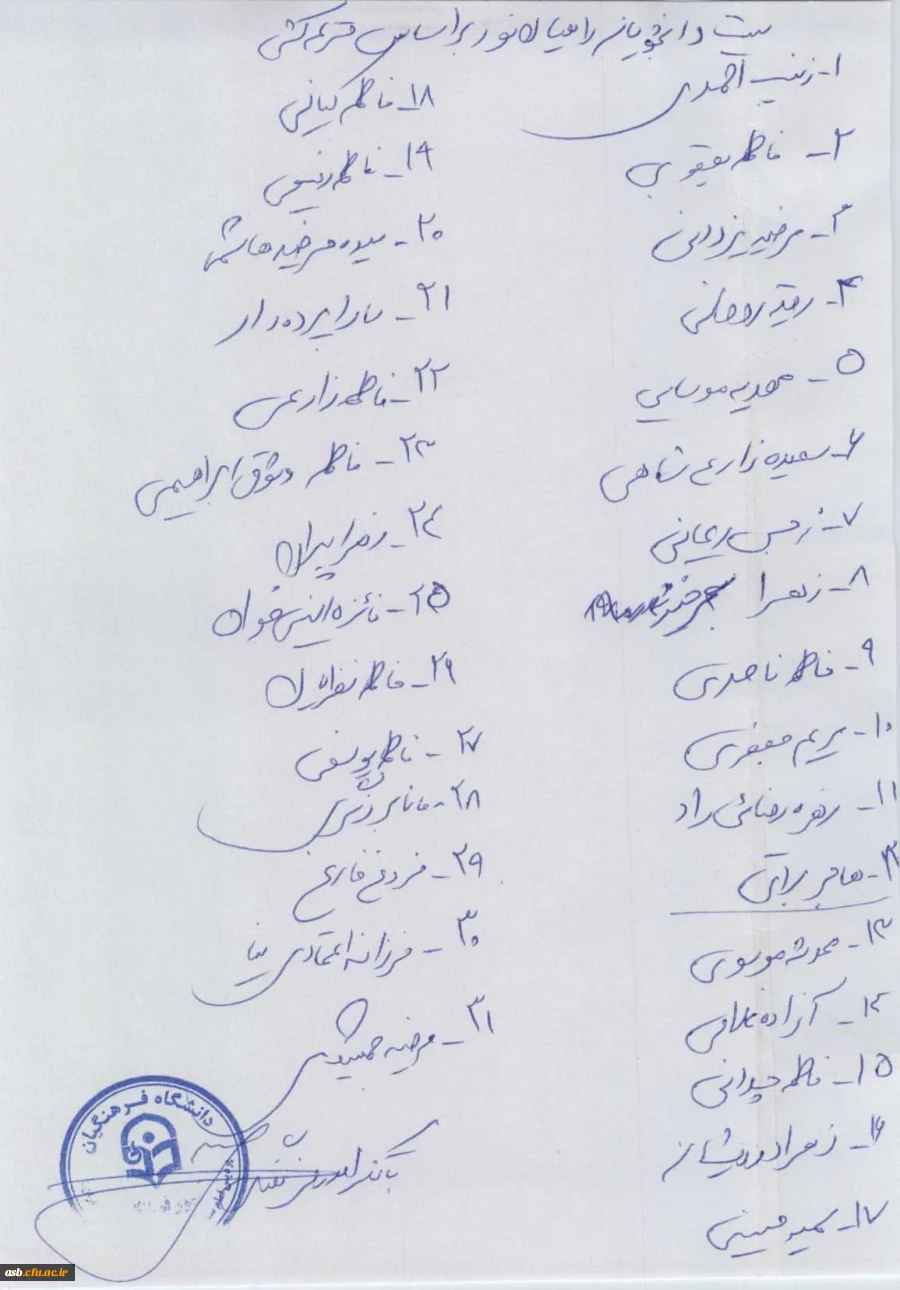 لیست دانشجویان راهیان نور براساس قرعه کشی
۱- زینب احمدی
۲- فاطمه یعقوبی
۳- مرضیه یزدانی
۴- رقیه رمضانی
۵- مهدیه موسایی
۶- سعیده زارعی شاهی
۷- نرجس ریحانی
۸- زهرا
۹- فاطمه ناصری
۱۰- مریم جعفری
۱۱- زهره رضائی راد
۱۲- هاجر براتی
۱۳- محدثه موسوی
۱۴- آزاده غلامی
۱۵- فاطمه چوپانی
۱۶- زهرا درویشانه
۱۷- سمیه حسینی
۱۸- فاطمه کیانی
۱۹- فاطمه رفیعی
۲۰- سیده مرضیه هاشمی
۲۱- سارا پرده دار
۲۲- فاطمه زارعی
۲۳- فاطمه وثوق ابراهیمی
۲۴- زهرا پیران
۲۵- فائزه
۲۶- فاطمه
۲۷- فاطمه یوسفی
۲۸- مانا برزگری
۲۹- فروغ فارغ
۳۰- فرزانه اعتمادی نیا
۳۱- مرضیه جمشیدی
باتشکر
دانشگاه فرهنگیان
asb.cfu.ac.ir